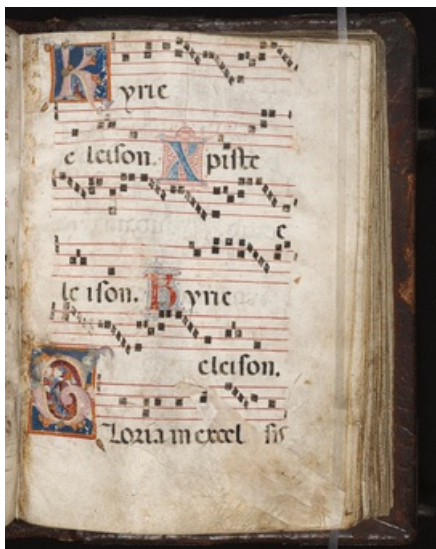 Kyrie
eleison. Xpiste
e
leison. Kyrie
eleison.
Gloria in excelsis